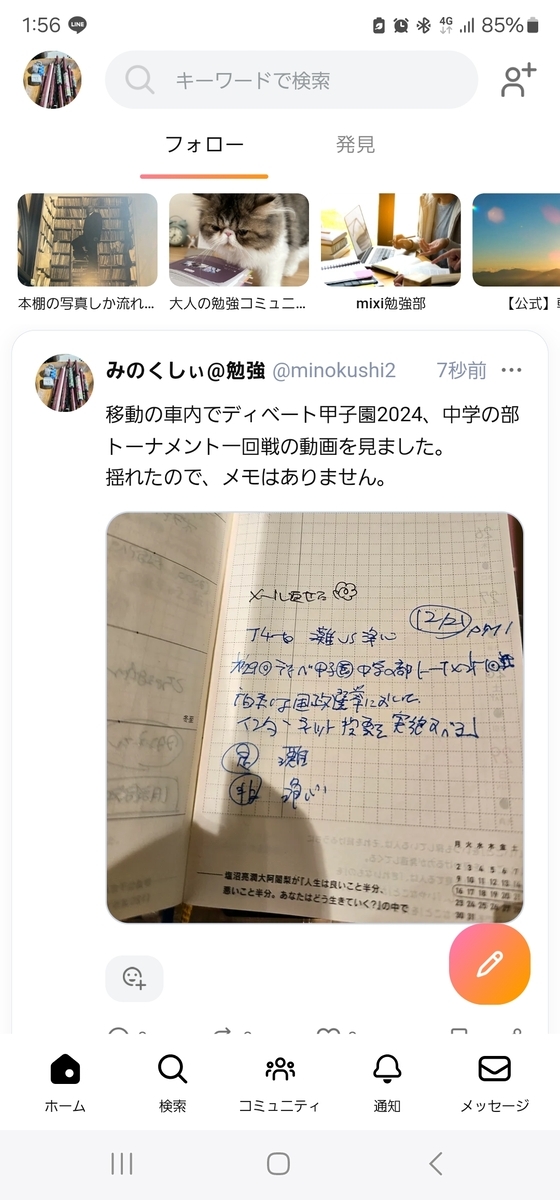 1:56 LINE 4G 85%
キーワードで検索
フォロー 発見
本棚の写真しか流れ…
大人の勉強コミュニ…
mixi勉強部
【公式】
みのくしぃ@勉強 @minokushi2 7秒前
移動の車内でディベート甲子園2024、中学の部
トーナメント一回戦の動画を見ました。
揺れたので、メモはありません。
メール返せる
12/21
灘 vs
甲子園 中学の部
日本は国政選挙において
インターネット投票を実施すべき」
灘
冬至
月 火 水 木 金 土
2 3 4 5 6 7
9 10 11 12 13 14
16 17 18 19 20 21
23 24 25 26 27 28
30 31
塩沼亮潤大阿闍梨が『人生は良いこと半分、
悪いこと半分。あなたはどう生きていく?』の中で
ホーム 検索 コミュニティ 通知 メッセージ